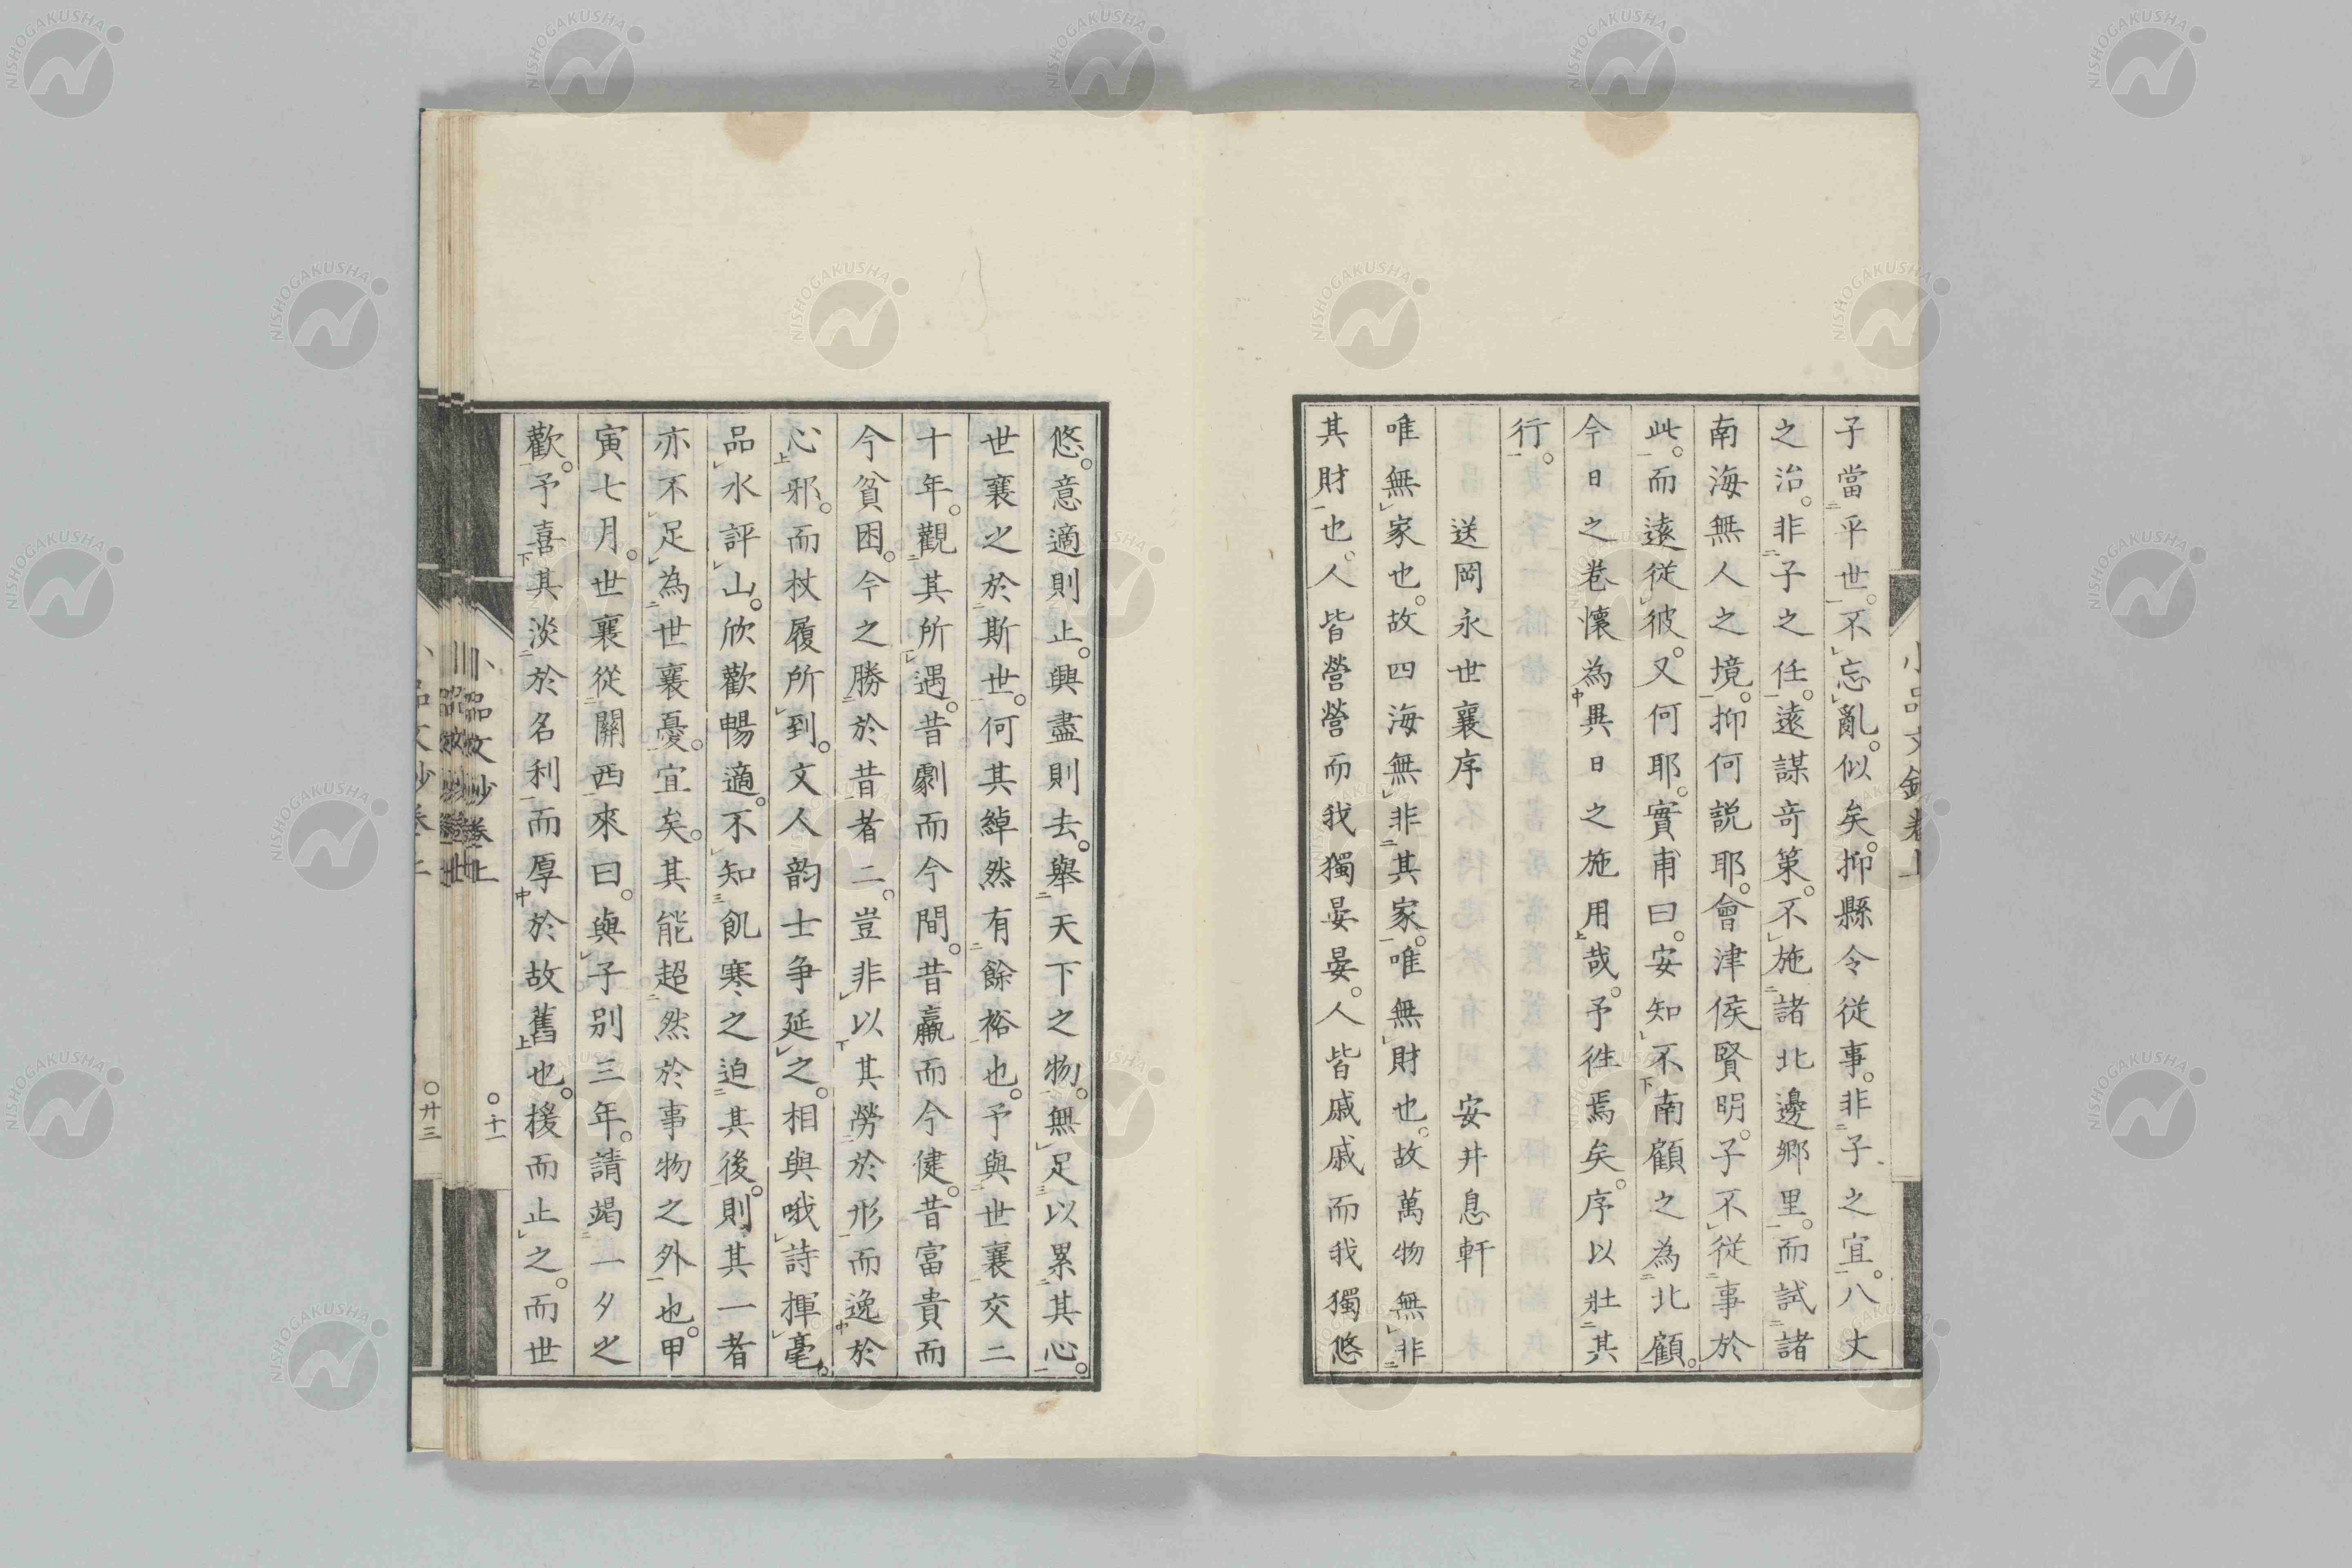 子當平世。不忘亂。似矣。抑縣令從事。非子之宜。八丈
之治。非子之任。遠謀奇策。不施諸北邊郷里。而試諸
南海無人之境。抑何説耶。會津侯賢明。子不從事於
此。而遠從彼。又何耶。實甫曰。安知不南顧之為北顧。
今日之卷懷為異日之施用哉。予徃焉矣。序以壯其
行。
送岡永世襄序 安井息軒
唯無家也。故四海無非其家。唯無財也。故萬物無非
其財也。人皆營營而我獨晏晏。人皆戚戚而我獨悠
悠。意適則止。興盡則去。舉天下之物。無足以累其心。
世襄之於斯世。何其綽然有餘裕也。予與世襄交二
十年。觀其所遇。昔劇而今間。昔羸而今健。昔富貴而
今貧困。今之勝於昔者二。豈非以其勞於形而逸於
心邪。而杖履所到。文人韵士争延之。相與哦詩揮毫。
品水評山。欣歡暢適。不知飢寒之迫其後。則其一者
亦不足為世襄憂。宜矣。其能超然於事物之外也。甲
寅七月。世襄從關西來曰。與子別三年。請竭一夕之
歡。予喜其淡於名利而厚於故舊也。援而止之。而世
小品文鈔卷上
十一
小品文鈔卷上
廿三
NISHOGAKUSHA